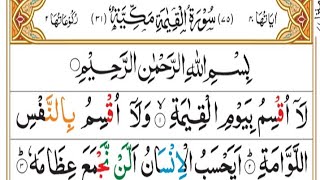 اٰیَاتُهَا ۴۰ (۷۵) سُوْرَةُ الْقِیٰمَةِ مَكِّیَّةٌ (۳۱) رُكُوْعَاتُهَا ۲
بِسْمِ اللهِ الرَّحْمٰنِ الرَّحِیْمِ
لَاۤ اُقْسِمُ بِیَوْمِ الْقِیٰمَةِ ۱ وَلَاۤ اُقْسِمُ بِالنَّفْسِ
اللَّوَّامَةِ ۲ اَیَحْسَبُ الْاِنْسَانُ اَلَّنْ نَّجْمَعَ عِظَامَهٗ ۳